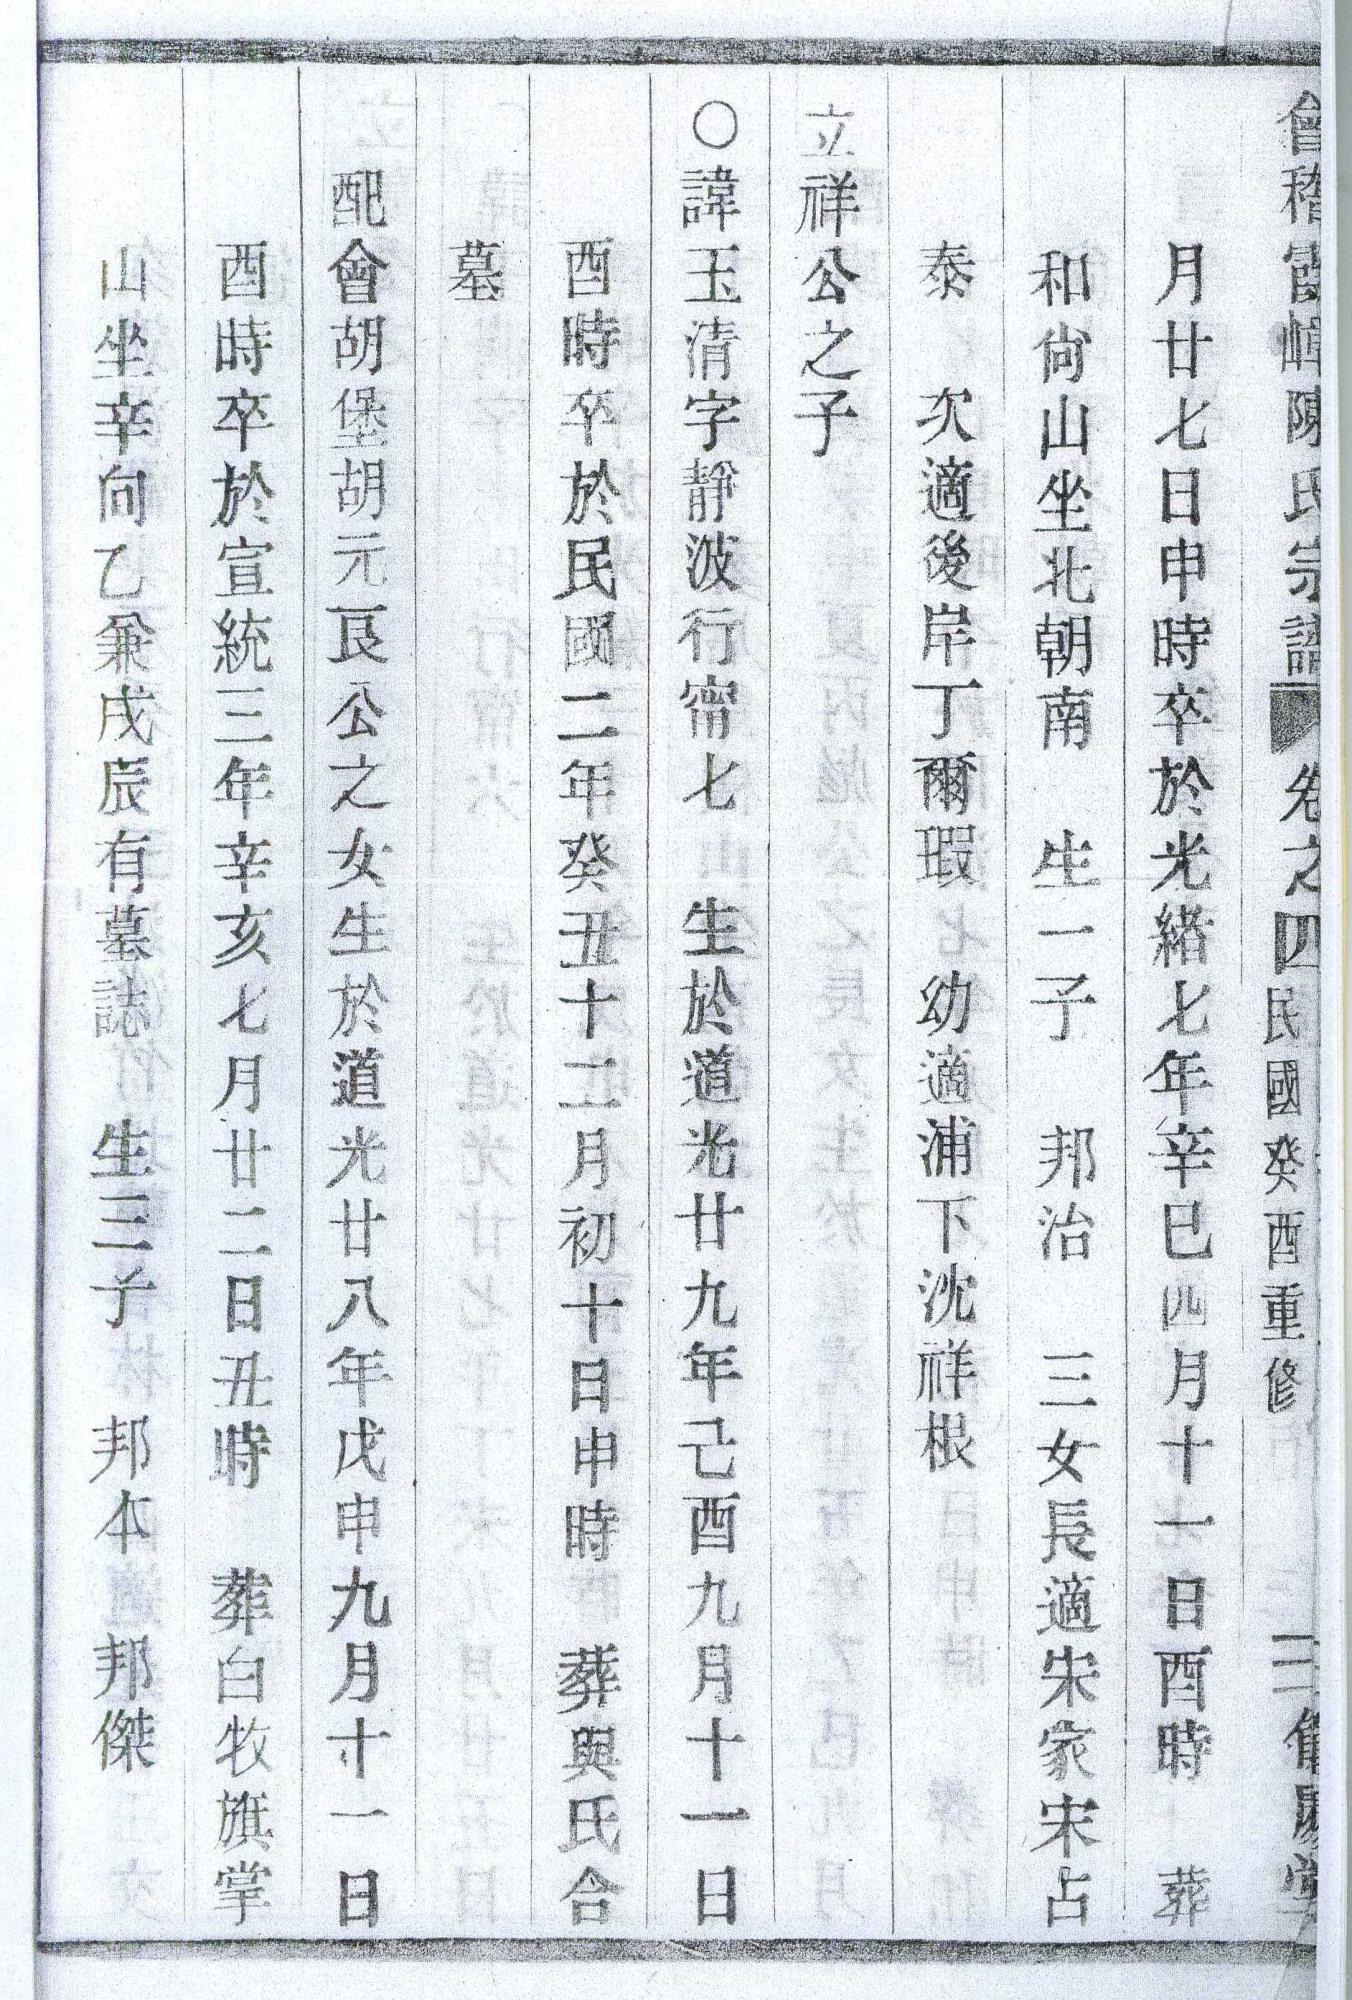 會稽富嶂陳氏宗譜 卷之四 民國癸酉重修 二
月廿七日申時卒於光緒七年辛巳四月十一日酉時 葬
和尙山坐北朝南 生一子 邦治 三女長適宋家宋占
泰 次適後岸丁爾瑕 幼適浦下沈祥根
立祥公之子
〇諱玉清字靜波行甯七 生於道光廿九年己酉九月十一日
酉時卒於民國二年癸丑十二月初十日申時 葬與氏合
墓
配會胡堡胡元良公之女生於道光廿八年戊申九月十一日
酉時卒於宣統三年辛亥七月廿二日丑時 葬白牧旗掌
山坐辛向乙兼戌辰有墓誌 生三子 邦本 邦傑